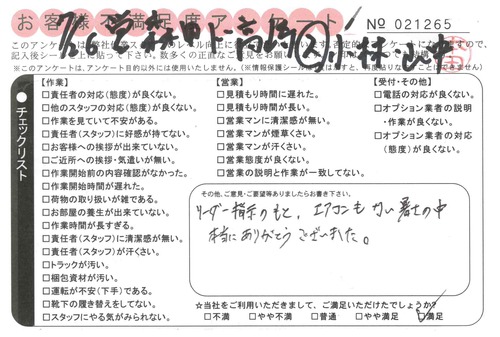 お客様不満足度アンケート
No 021265
7/6 営森田 上高 小林 山中
【作業】
□責任者の対応(態度)が良くない。
□他のスタッフの対応(態度)が良くない。
□作業を見ていて不安がある。
□責任者(スタッフ)に好感が持てない。
□お客様への挨拶が出来ていない。
□ご近所への挨拶・気遣いが無い。
□作業開始前の内容確認がなかった。
□作業開始時間が遅れた。
□荷物の取り扱いが雑である。
□お部屋の養生が出来ていない。
□作業時間が長すぎる。
□責任者(スタッフ)に清潔感が無い。
□責任者(スタッフ)が汗くさい。
□トラックが汚い。
□梱包資材が汚い。
□運転が不安(下手)である。
□靴下の履き替えをしてない。
□スタッフにやる気がみられない。
【営業】
□見積もり時間に遅れた。
□見積もり時間が長い。
□営業マンに清潔感が無い。
□営業マンが煙草くさい。
□営業マンが汗くさい。
□営業態度が良くない。
□営業の説明と作業が一致してない。
【受付・その他】
□電話の対応が良くない。
□オプション業者の説明
・作業が良くない。
□オプション業者の対応
(態度)が良くない。
チェックリスト
その他、ご意見・ご要望等ありましたらお書き下さい。
リーダー指示のもと、エアコンもない暑さの中
本当にありがとうございました。
☆当社をご利用いただきまして、ご満足いただけたでしょうか?
□不満 □やや不満 □普通 □やや満足 □満足